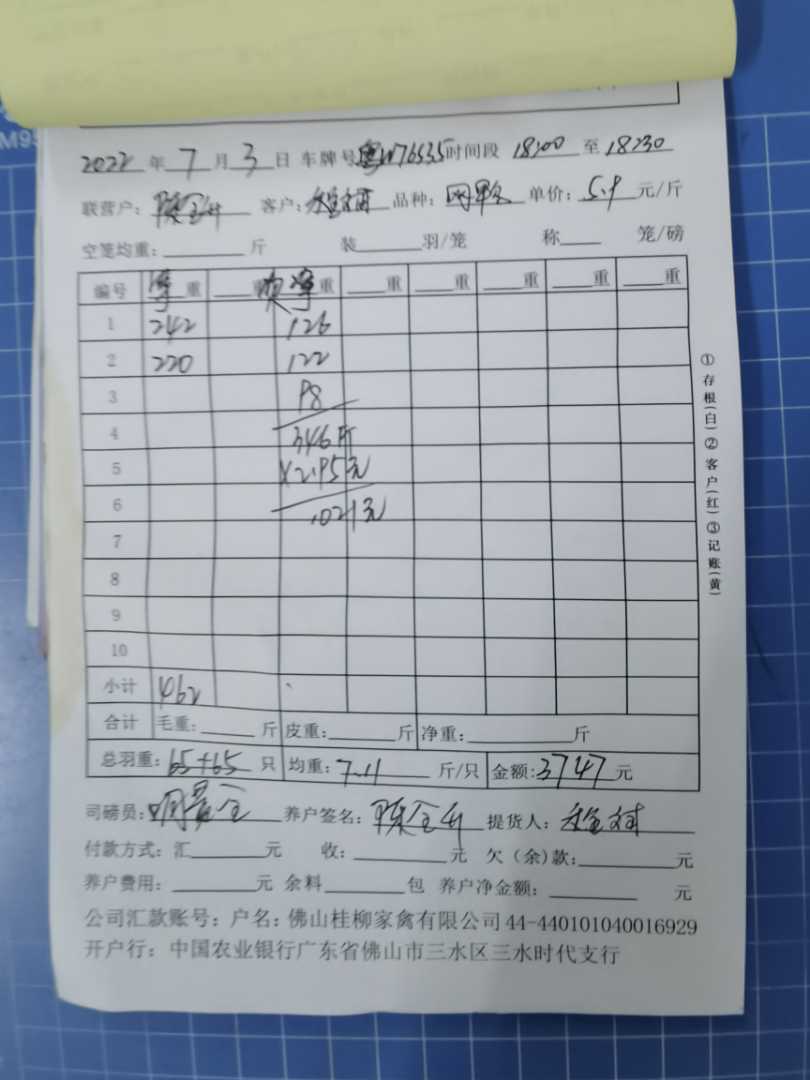 2022 年 7 月 3 日 车牌号 粤W76535 时间段 18:00 至 18:30
联营户: 陈金升 客户: 品种: 单价: 5.9 元/斤
空笼均重: 斤 装 羽/笼 称 笼/磅
编号 净重 重 净重 重 重 重 重 重
1 242 126
2 220 122
3 98
4 346斤
5 ×2.95元
6 1021元
7
8
9
10
小计 462
合计 毛重: 斤 皮重: 斤 净重: 斤
总羽重: 65+65 只 均重: 7.11 斤/只 金额: 3747 元
司磅员: 养户签名: 陈金升 提货人:
付款方式: 汇 元 收: 元 欠(余)款: 元
养户费用: 元 余料 包 养户净金额: 元
公司汇款账号: 户名: 佛山桂柳家禽有限公司 44-440101040016929
开户行: 中国农业银行广东省佛山市三水区三水时代支行
①存根(白)②客户(红)③记账(黄)